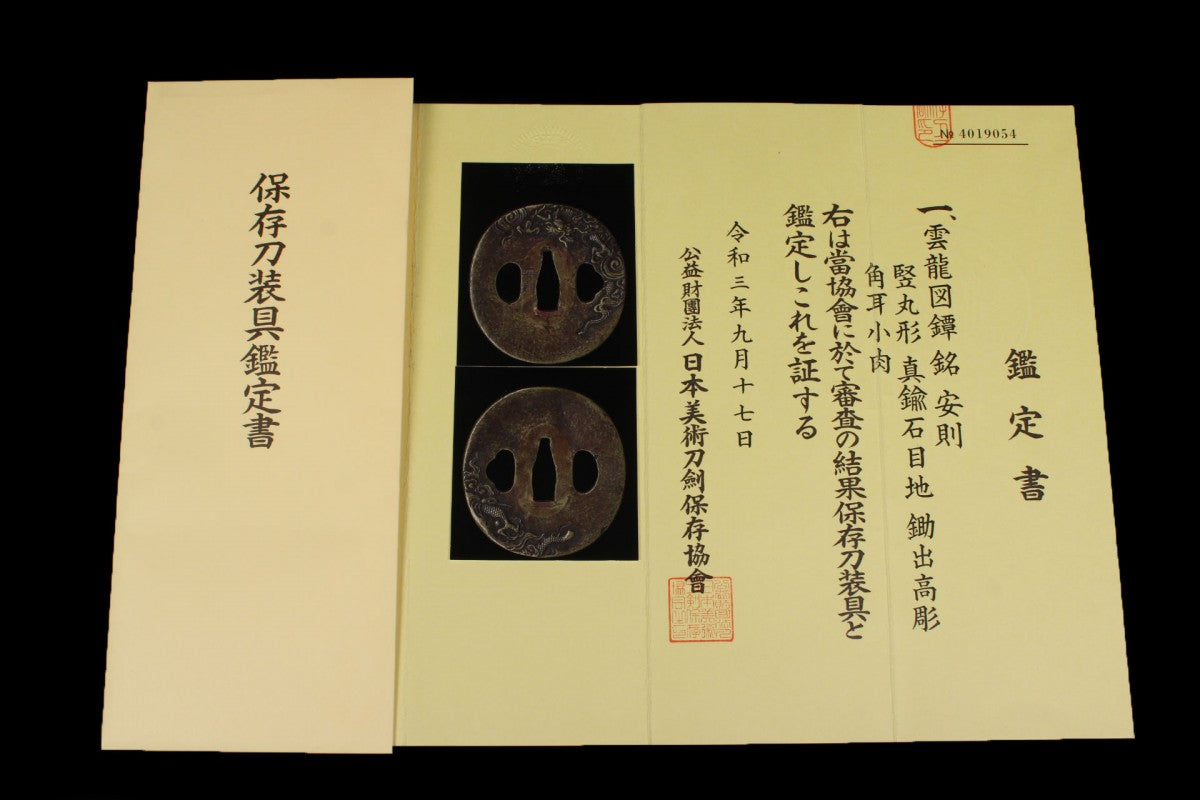 保存刀装具鑑定書
№ 4019054
鑑定書
一、雲龍図鐔 銘 安則
竪丸形 真鍮石目地 鋤出高彫
角耳小肉
右は當協會に於て審査の結果保存刀装具と
鑑定しこれを証する
令和三年九月十七日
公益財團法人 日本美術刀劍保存協會